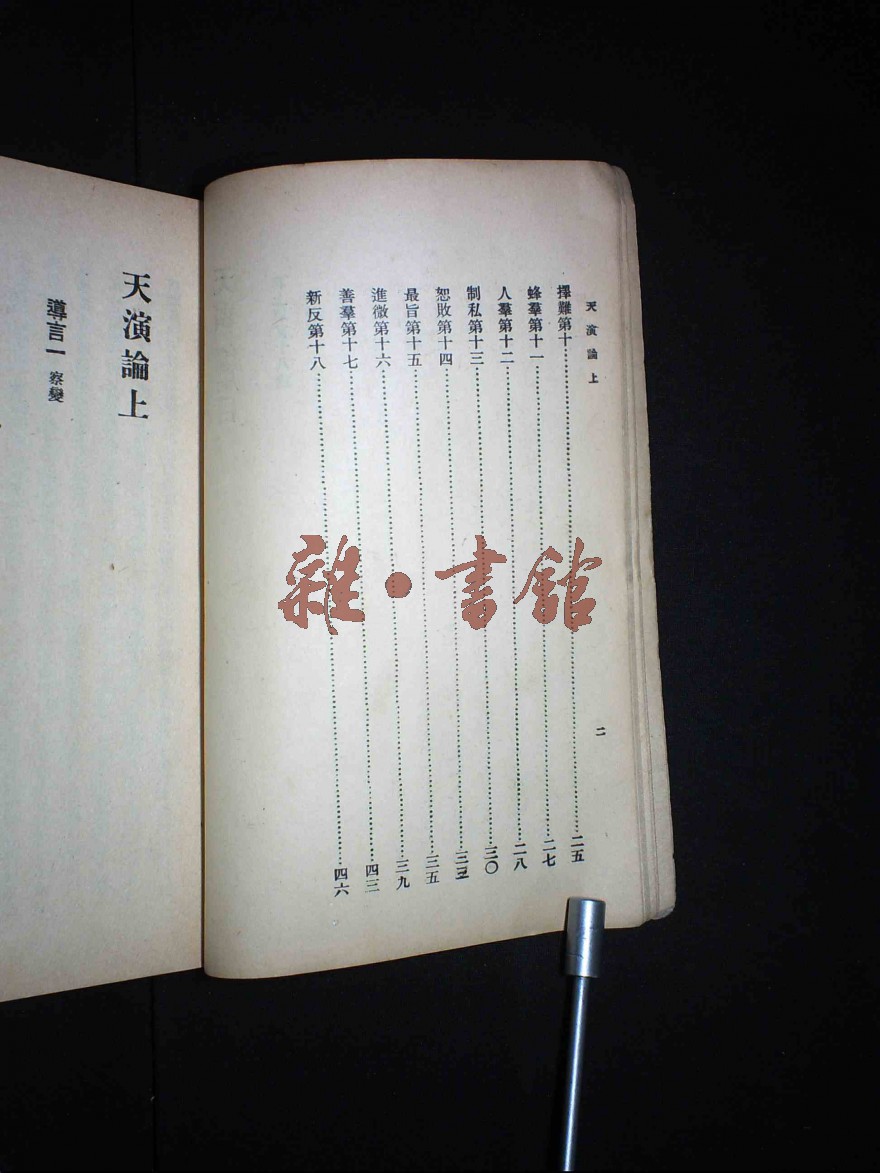 天演論上
二
擇難第十……二五
蜂羣第十一……二七
人羣第十二……二八
制私第十三……三〇
恕敗第十四……三三
最旨第十五……三五
進微第十六……三九
善羣第十七……四三
新反第十八……四六
天演論上
導言一 察變
雜·書館